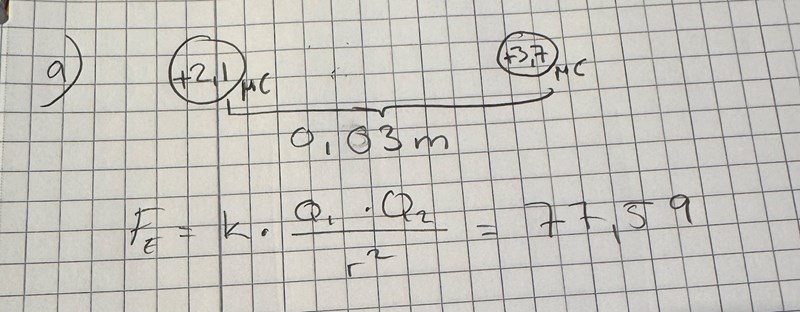 a) +2,1 μC +3,7 μC
0,03 m
F_E = k · Q₁ · Q₂ / r² = 77,59